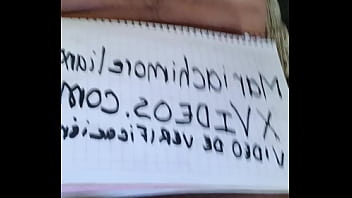 Mariachimorelians
XVIDEOS.COM
VIDEO DE VERIFICACIÓN